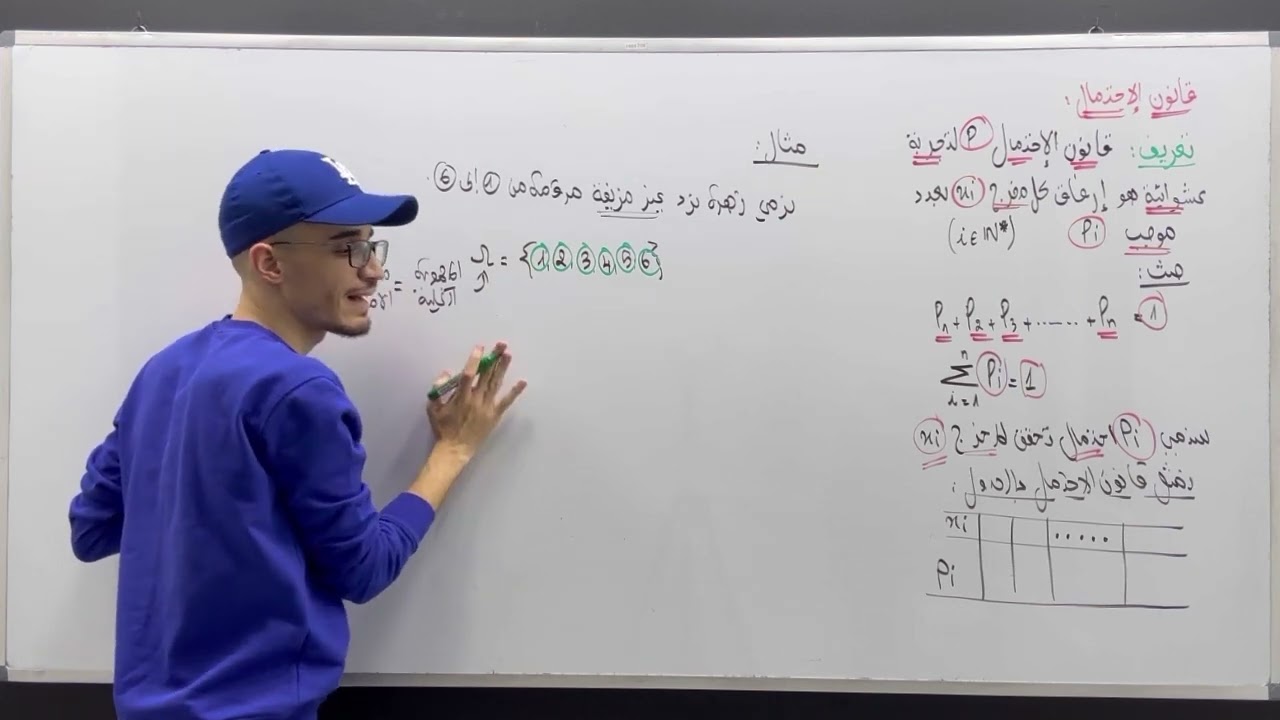 قانون الاحتمال:
تعريف: قانون الإحتمال P لتجربة
عشوائية هو إرفاق كل مخرج xi بعدد
موجب Pi (i∈ℕ*)
حيث:
P1 + P2 + P3 + ...... + Pn = 1
n
∑ Pi = 1
i=1
نسمي Pi احتمال تحقق المخرج xi
نمثل قانون الاحتمال بالجدول:
xi .....
Pi
مثال:
نرمي زهرة نرد غير مزيفة مرقمة من 1 إلى 6.
المجموعة الكلية = Ω = {1, 2, 3, 4, 5, 6}